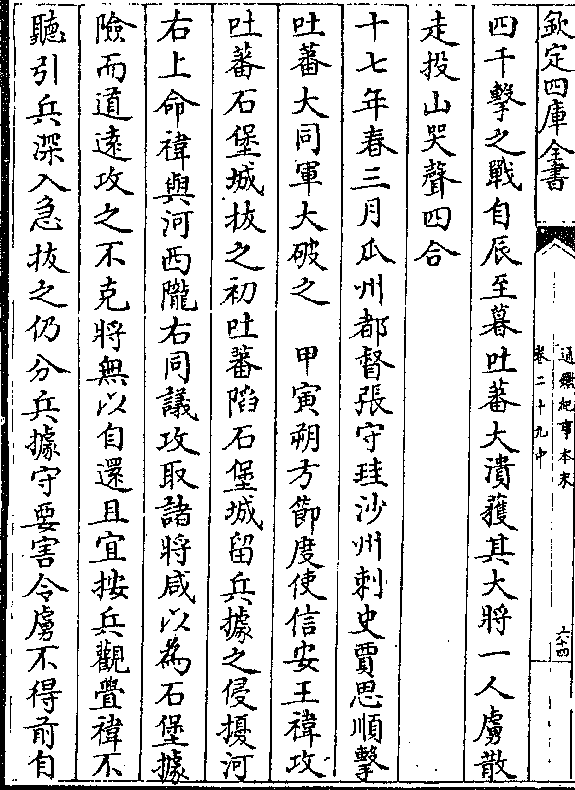 欽定四庫全書
通鑑紀事本末
卷二十九中
六十四
四千擊之戰自辰至暮吐蕃大潰獲其大將一人虜散
走投山哭聲四合
十七年春三月瓜州都督張守珪沙州刺史賈思順擊
吐蕃大同軍大破之　甲寅朔方節度使信安王禕攻
吐蕃石堡城拔之初吐蕃陷石堡城留兵據之侵擾河
右上命禕與河西隴右同議攻取諸將咸以為石堡據
險而道遠攻之不克將無以自還且宜按兵觀釁禕不
聽引兵深入急拔之仍分兵據守要害令虜不得前自